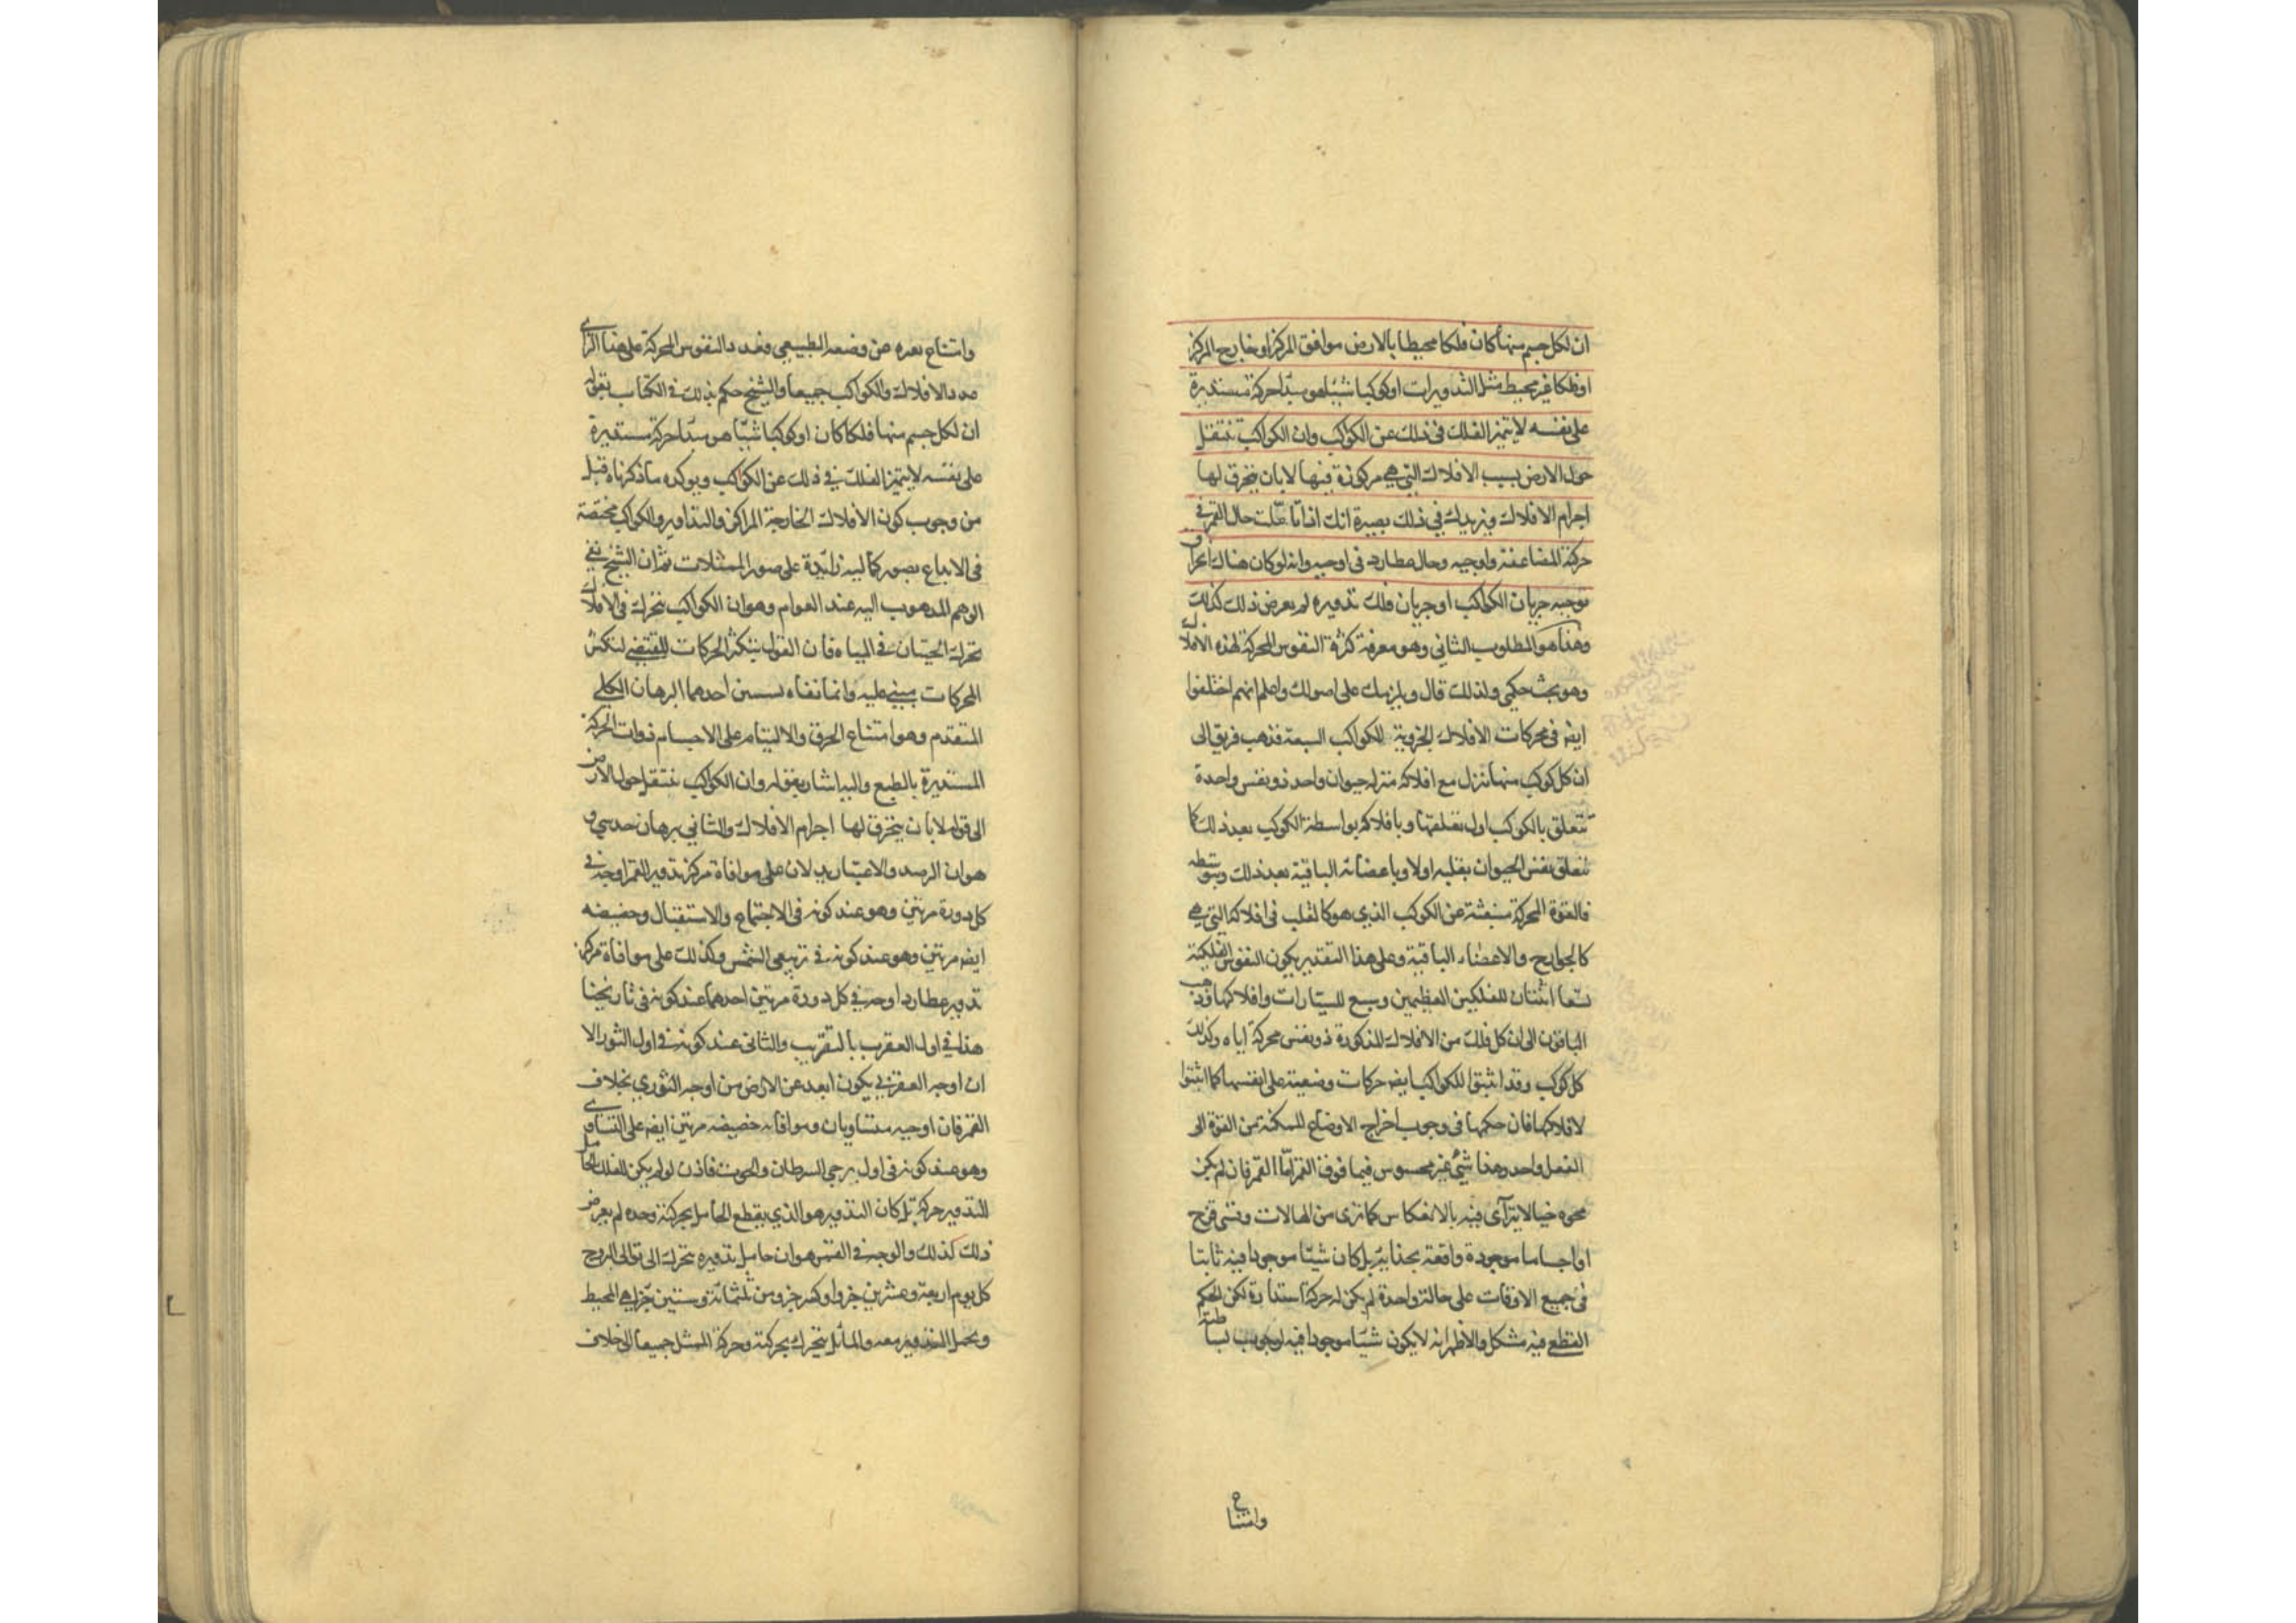 ان لكل جسم منها كان فلكا محيطا بالارض موافق المركز او خارج المركز
او فلكا غير محيط مثل التدويرات او كوكبا شيئا هو مبدأ حركة مستديرة
على نفسه لا يتميز الفلك فى ذلك عن الكواكب وان الكواكب تنتقل
حول الارض بسبب الافلاك التي هي مركوزة فيها لا بان ينخرق لها
اجرام الافلاك ويزيدك في ذلك بصيرة انك اذا تأملت حال القمر في
حركة المضاعفة واوجيه وحال عطارد فى اوجيه وانه لو كان هناك انخراق
يوجبه جريان الكواكب او جريان فلك تدويره لم يعرض ذلك كذلك
وهذا هو المطلوب الثاني وهو معرفة كثرة النفوس المحركة لهذه الافلاك
وهو بحث حكمي ولذلك قال ويلزمك على اصولك واعلم انهم اختلفوا
ايضا فى محركات الافلاك الجزوية للكواكب السبعة فذهب فريق الى
ان كل كوكب منها تنزل مع افلاكه منزلة حيوان واحد ذو نفس واحدة
تتعلق بالكوكب اول تعلقها وبافلاكه بواسطة الكوكب بعد ذلك كما
تتعلق نفس الحيوان بقلبه اولا وباعضائه الباقية بعد ذلك وبتوسطه
فالقوة المحركة منبعثة عن الكوكب الذي هو كالقلب فى افلاكه التي هي
كالجوارح والاعضاء الباقية وعلى هذا التقدير يكون النفوس الفلكية
تسعا اثنتان للفلكين العظيمين وسبع للسيارات وافلاكها وذهب
الباقون الى ان كل فلك من الافلاك المذكورة ذو نفس محركة اياه وكذلك
كل كوكب وقد اثبتوا للكواكب ايضا حركات وضعية على انفسها كما اثبتوا
لافلاكها فان حكمها فى وجوب اخراج الاوضاع الممكنة من القوة الى
الفعل واحد وهذا شئ غير محسوس فيما فوق القمر اما القمر فان لم يكن
محوه خيالا يتراآى فيه بالانعكاس كما ترى من الهالات وقسى قزح
او اجساما موجودة واقعة بحذائه بل كان شيئا موجودا فيه ثابتا
فى جميع الاوقات على حالة واحدة لم يكن له حركة استدارة لكن الحكم
القطع فيه مشكل والاظهر انه لا يكون شيئا موجودا فيه لوجوب بساطته
وامتناع
وامتناع بعده عن وضعه الطبيعي وعدد النفوس المحركة على هذا الرأى
عدد الافلاك والكواكب جميعا والشيخ حكم بذلك في الكتاب بقوله
ان لكل جسم منها فلكا كان او كوكبا شيئا هو مبدأ حركة مستديرة
على نفسه لا يتميز الفلك في ذلك عن الكواكب ويؤكده ما ذكرناه قبل
من وجوب كون الافلاك الخارجة المراكز والتداوير والكواكب مختصة
فى الابداع بصور كمالية زايدة على صور الممثلات ثم ان الشيخ نفي
الوهم المذهوب اليه عند العوام وهو ان الكواكب تتحرك في الافلاك
تحرك الحيتان في المياه فان القول بتكثر الحركات المقتضي لتكثر
المحركات مبني عليه وانما نفاه بسببين احدهما البرهان الكلي
المتقدم وهو امتناع الخرق والالتيام على الاجسام ذوات الحركة
المستديرة بالطبع واليه اشار بقوله وان الكواكب تنتقل حول الارض
الى قوله لا بان ينخرق لها اجرام الافلاك والثاني برهان حدسي و
هو ان الرصد والاعتبار يدلان على موافاة مركز تدوير القمر اوجه في
كل دورة مرتين وهو عند كونه فى الاجتماع والاستقبال وحضيضه
ايضا مرتين وهو عند كونه في تربيعي الشمس وكذلك على موافاة مركز
تدوير عطارد اوجه في كل دورة مرتين احدهما عند كونه فى تاريخنا
هذا في اول العقرب بالتقريب والثانى عند كونه في اول الثور الا
ان اوجه العقربي يكون ابعد عن الارض من اوجه الثوري بخلاف
القمر فان اوجيه متساويان وموافاته حضيضه مرتين ايضا على التساوى
وهو عند كونه فى اول برجي السرطان والحوت فاذن لو لم يكن للفلك الحامل
للتدوير حركة بل كان التدوير هو الذي يقطع الحامل بحركته وحده لم يعرض
ذلك كذلك والوجه في القمر هو ان حامل تدويره تتحرك الى توالى البروج
كل يوم اربعة وعشرين جزوا وكسر جزو من ثلثمائة وستين جزا هي المحيط
ويحمل التدوير معه والمائل يتحرك بحركته وحركة الممثل جميعا الى خلاف